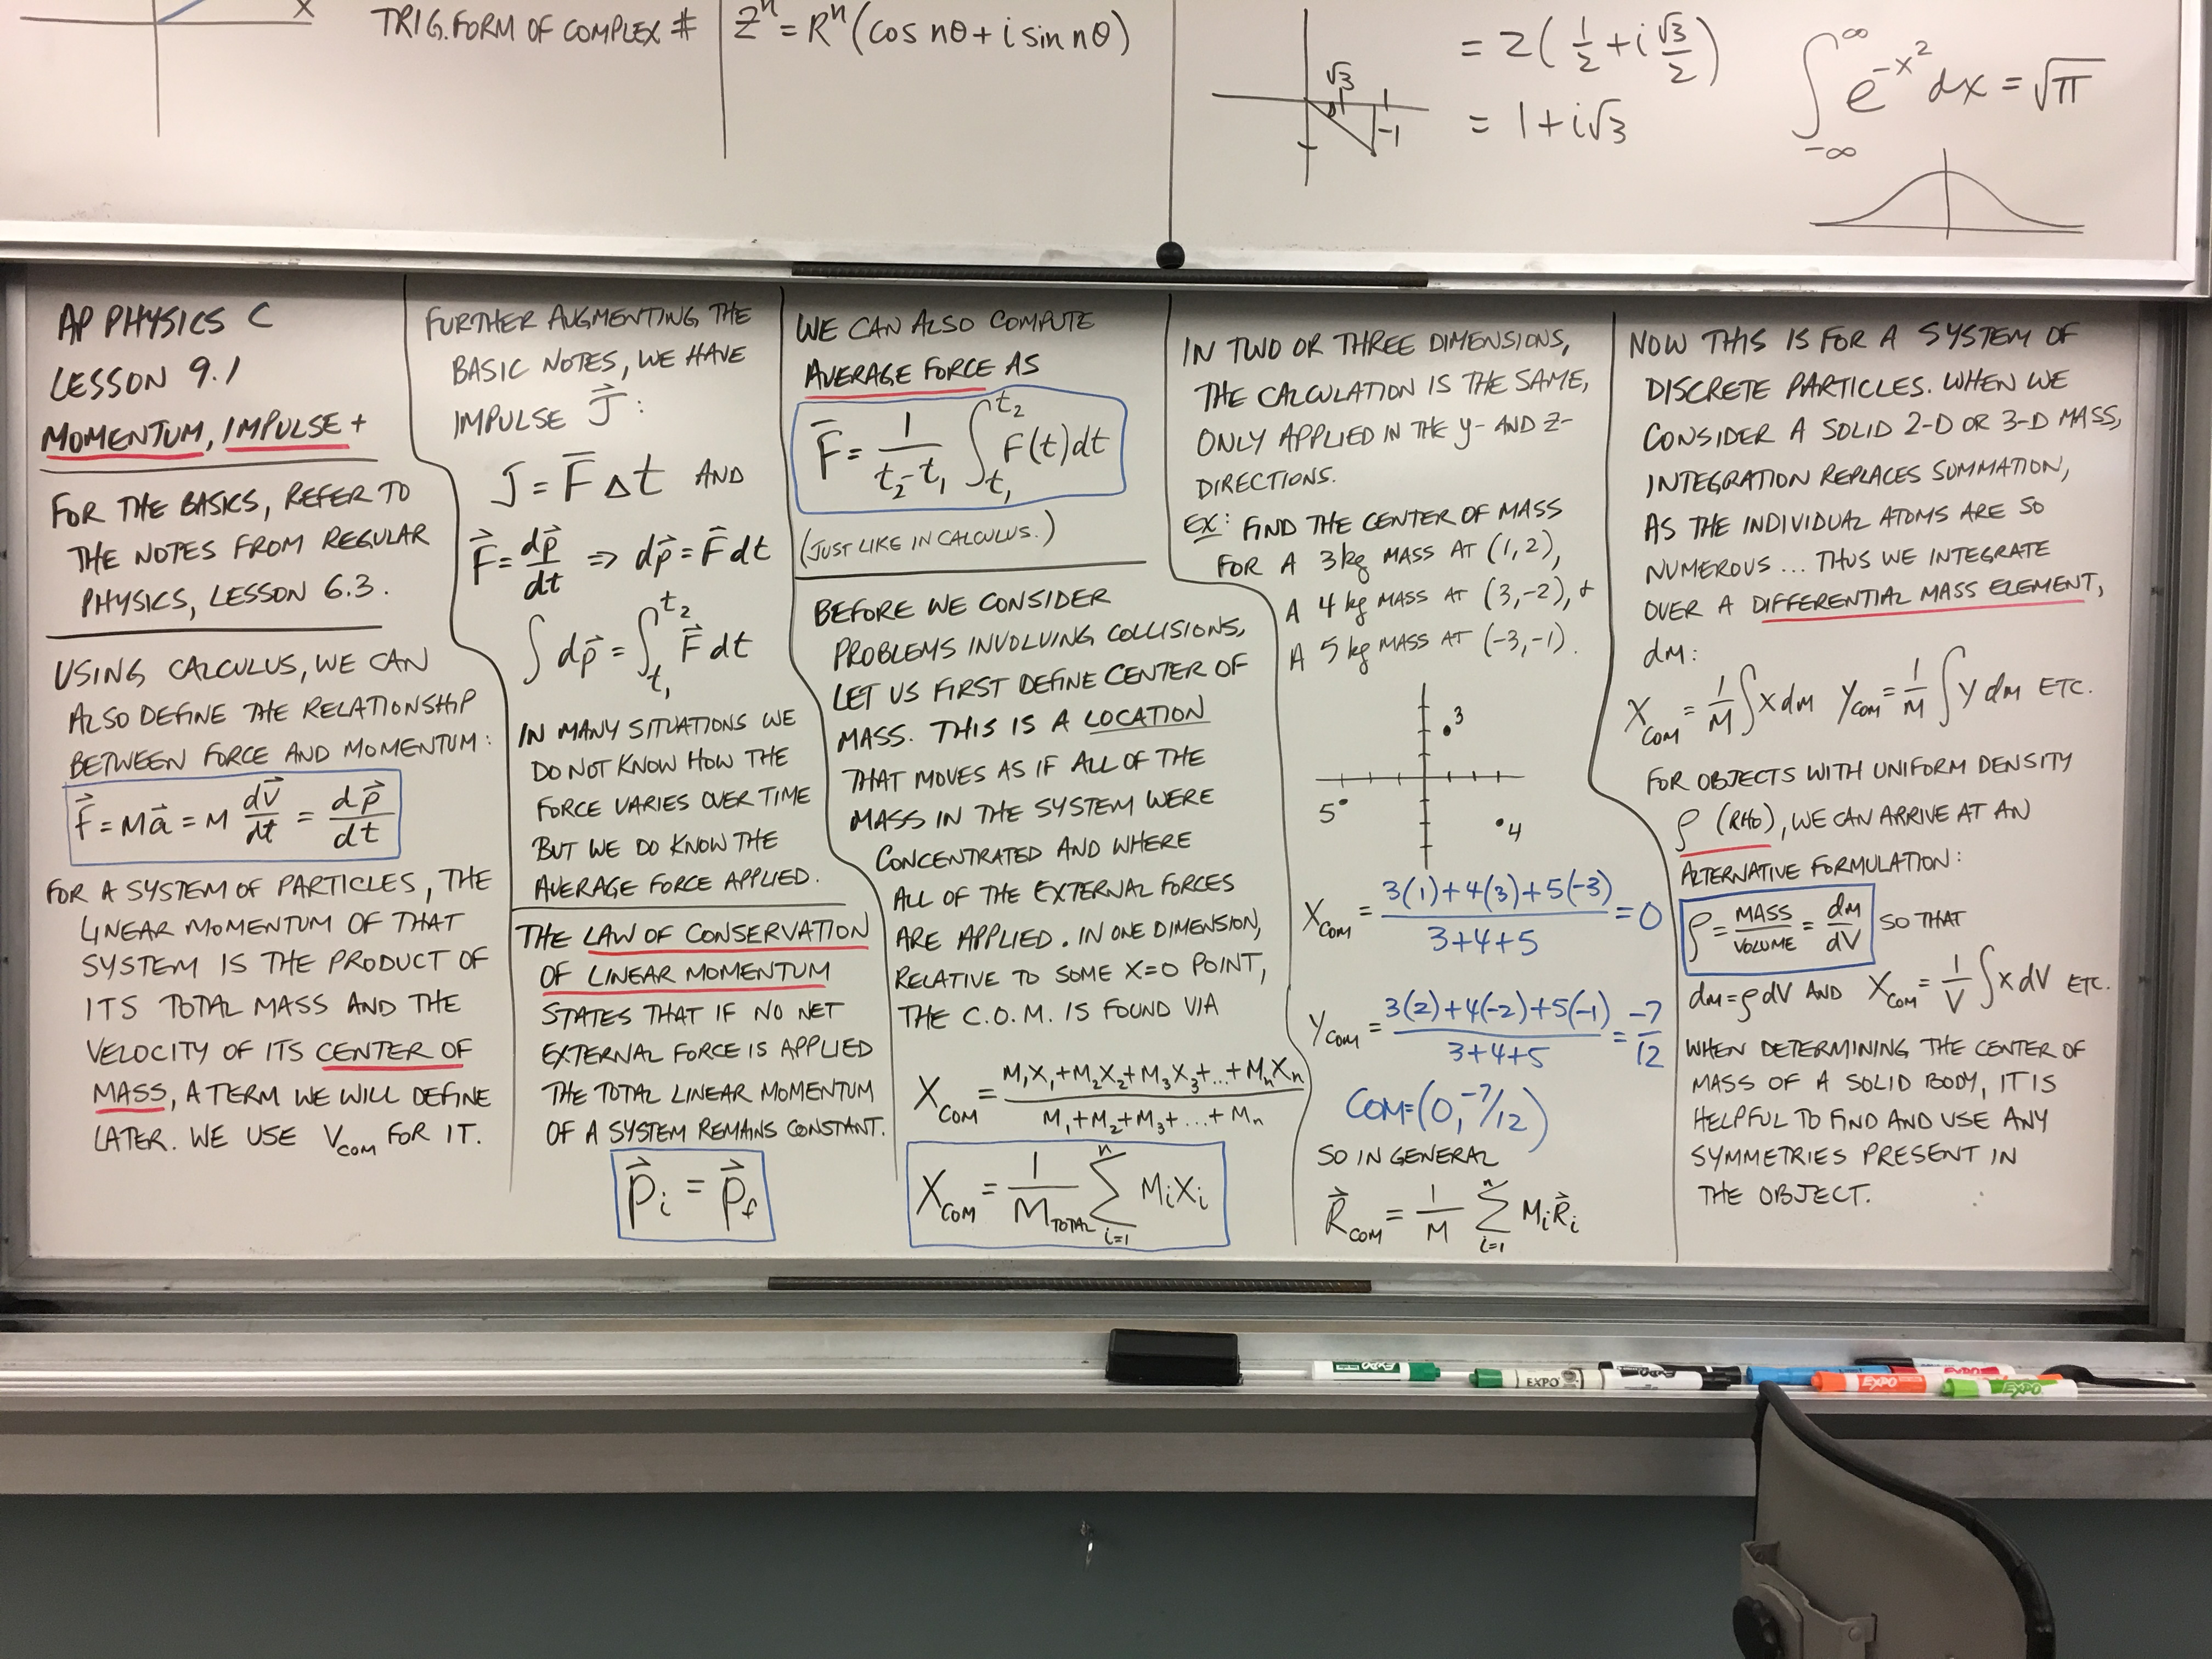 X
TRIG. FORM OF COMPLEX #
Zⁿ = Rⁿ (cos nθ + i sin nθ)
√3
1
-1
= 2( 1/2 + i √3/2 )
= 1 + i√3
∫_{-∞}^{∞} e^{-x²} dx = √π
AP PHYSICS C
LESSON 9.1
MOMENTUM, IMPULSE +
FOR THE BASICS, REFER TO
THE NOTES FROM REGULAR
PHYSICS, LESSON 6.3.
USING CALCULUS, WE CAN
ALSO DEFINE THE RELATIONSHIP
BETWEEN FORCE AND MOMENTUM:
F⃗ = Ma⃗ = M dv⃗/dt = dp⃗/dt
FOR A SYSTEM OF PARTICLES, THE
LINEAR MOMENTUM OF THAT
SYSTEM IS THE PRODUCT OF
ITS TOTAL MASS AND THE
VELOCITY OF ITS CENTER OF
MASS, A TERM WE WILL DEFINE
LATER. WE USE V_COM FOR IT.
FURTHER AUGMENTING THE
BASIC NOTES, WE HAVE
IMPULSE J⃗:
J = F̄ Δt AND
F⃗ = dp⃗/dt ⇒ dp⃗ = F̄ dt
∫ dp⃗ = ∫_{t₁}^{t₂} F⃗ dt
IN MANY SITUATIONS WE
DO NOT KNOW HOW THE
FORCE VARIES OVER TIME
BUT WE DO KNOW THE
AVERAGE FORCE APPLIED.
THE LAW OF CONSERVATION
OF LINEAR MOMENTUM
STATES THAT IF NO NET
EXTERNAL FORCE IS APPLIED
THE TOTAL LINEAR MOMENTUM
OF A SYSTEM REMAINS CONSTANT.
p⃗_i = p⃗_f
WE CAN ALSO COMPUTE
AVERAGE FORCE AS
F̄ = 1/(t₂-t₁) ∫_{t₁}^{t₂} F(t)dt
(JUST LIKE IN CALCULUS.)
BEFORE WE CONSIDER
PROBLEMS INVOLVING COLLISIONS,
LET US FIRST DEFINE CENTER OF
MASS. THIS IS A LOCATION
THAT MOVES AS IF ALL OF THE
MASS IN THE SYSTEM WERE
CONCENTRATED AND WHERE
ALL OF THE EXTERNAL FORCES
ARE APPLIED. IN ONE DIMENSION,
RELATIVE TO SOME X=0 POINT,
THE C.O.M. IS FOUND VIA
X_COM = (M₁X₁+M₂X₂+M₃X₃+...+MₙXₙ)/(M₁+M₂+M₃+...+Mₙ)
X_COM = 1/M_TOTAL Σ_{i=1}^{n} MᵢXᵢ
IN TWO OR THREE DIMENSIONS,
THE CALCULATION IS THE SAME,
ONLY APPLIED IN THE y- AND z-
DIRECTIONS.
EX: FIND THE CENTER OF MASS
FOR A 3 kg MASS AT (1,2),
A 4 kg MASS AT (3,-2), +
A 5 kg MASS AT (-3,-1).
3
5
4
X_COM = (3(1)+4(3)+5(-3))/(3+4+5) = 0
Y_COM = (3(2)+4(-2)+5(-1))/(3+4+5) = -7/12
COM=(0, -7/12)
SO IN GENERAL
R⃗_COM = 1/M Σ_{i=1}^{n} MᵢR⃗ᵢ
NOW THIS IS FOR A SYSTEM OF
DISCRETE PARTICLES. WHEN WE
CONSIDER A SOLID 2-D OR 3-D MASS,
INTEGRATION REPLACES SUMMATION,
AS THE INDIVIDUAL ATOMS ARE SO
NUMEROUS... THUS WE INTEGRATE
OVER A DIFFERENTIAL MASS ELEMENT,
dM:
X_COM = 1/M ∫ x dM Y_COM = 1/M ∫ y dM ETC.
FOR OBJECTS WITH UNIFORM DENSITY
ρ (RHO), WE CAN ARRIVE AT AN
ALTERNATIVE FORMULATION:
ρ = MASS/VOLUME = dM/dV SO THAT
dM = ρ dV AND X_COM = 1/V ∫ x dV ETC.
WHEN DETERMINING THE CENTER OF
MASS OF A SOLID BODY, IT IS
HELPFUL TO FIND AND USE ANY
SYMMETRIES PRESENT IN
THE OBJECT.
EXPO
EXPO
EXPO
EXPO
EXPO
EXPO